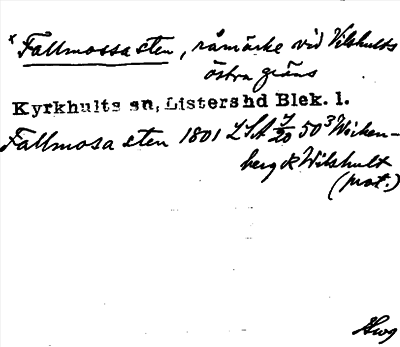 * Fallmossasten, råmärke vid Vilshults
östra gräns
Kyrkhults sn, Listers hd Blek. l.
Fallmosa sten 1801 LSA 7/20 50³ Wirken-
berg & Wilshult
(prot.)